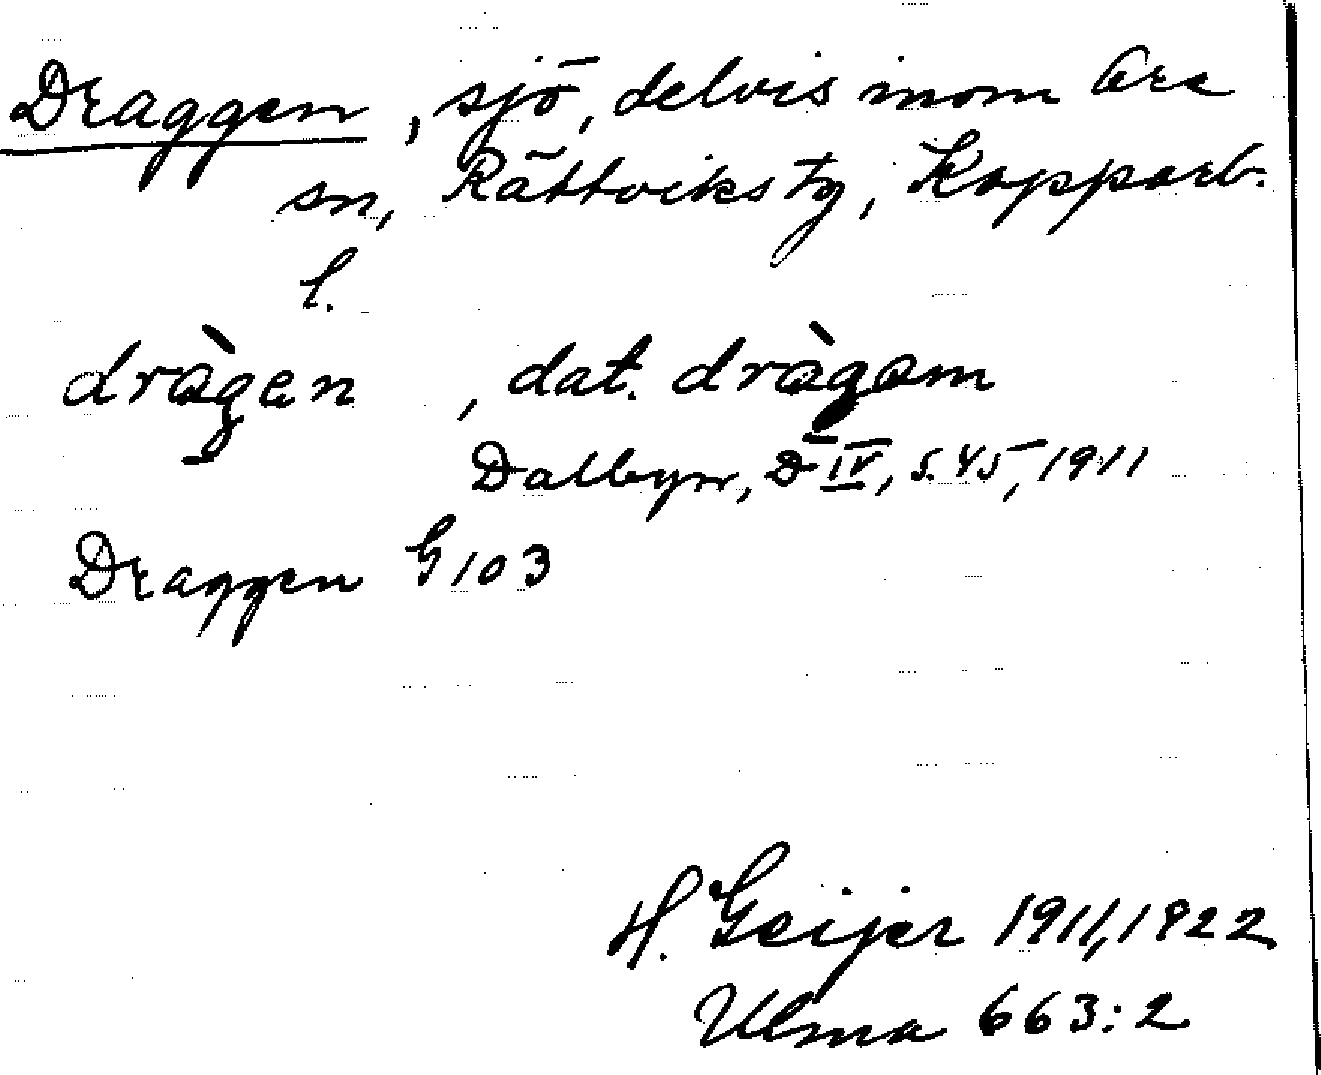 Draggen, sjö, delvis inom Ore
sn, Rättviks tg, Kopparb.
l.
dràgen, dat. dràgom
Dalbyn, D IV, s. 45, 1911
Draggen G 103
H. Geijer 1911, 1922
Ulma 663:2